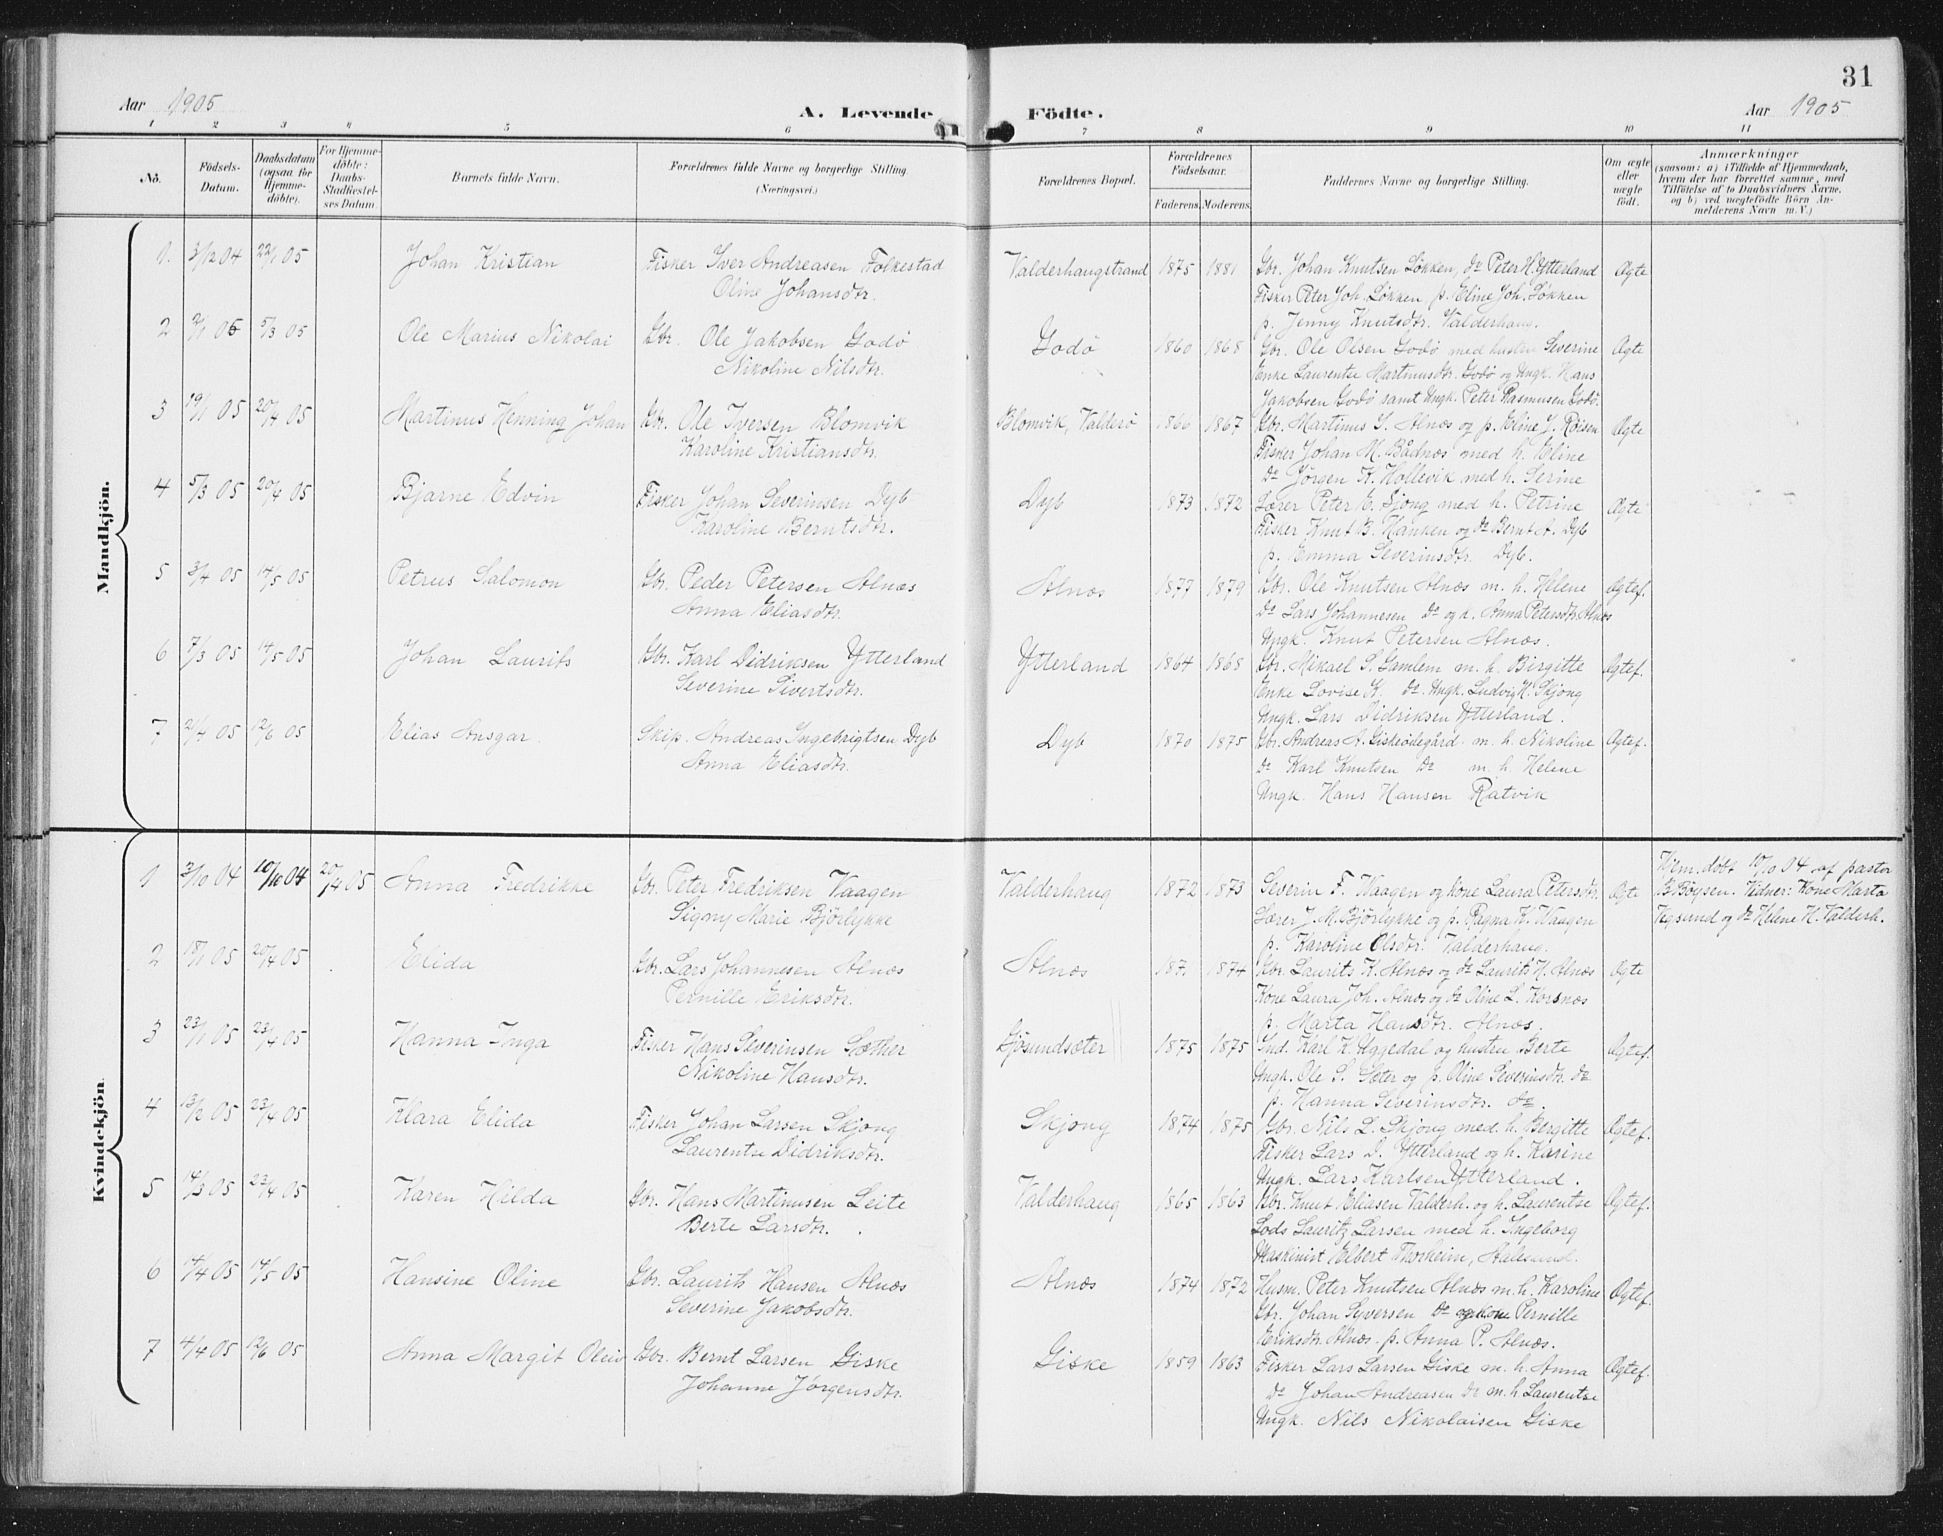 31
Aar 1905 A. Levende Födte. Aar 1905
1 2 3 4 5 6 7 8 9 10 11
No.
Födsels-Datum.
Daabsdatum (ogsaa for Hjemme-döbte).
For Hjemme-döbte: Daabs-Stadfæstel-ses Datum.
Barnets fulde Navn.
Forældrenes fulde Navne og borgerlige Stilling. (Næringsvei.)
Forældrenes Bopæl.
Forældrenes Födselsaar.
Faderens. Moderens.
Faddernes Navne og borgerlige Stilling.
Om ægte eller uægte født.
Anmærkninger
(saasom: a) i Tilfælde af Hjemmedaab, hvem der har forrettet samme, med Tilföielse af to Daabsvidners Navne, og b) ved uægtefødte Börn An-melderens Navn m. V.)
Mandkjön.
1. 3/12 04 22/1 05 Johan Kristian Fisker Iver Andreasen Folkestad Valderhaugstrand 1875 1881 Gbr. Johan Knutsen Løkken, do Peter H. Ytterland Ægte
Oline Johansdtr. Fisker Peter Joh. Løkken p. Eline Joh. Løkken
p. Jenny Knutsdtr. Valderhaug.
2 2/1 05 5/3 05 Ole Marius Nikolai Gbr. Ole Jakobsen Godø Godø 1860 1868 Gbr. Ole Olsen Godø med hustru Severine Ægte
Nikoline Nilsdtr. Enke Laurentse Martinusdtr. Godø og Ungk. Hans
Jakobsen Godø samt Ungk. Peter Rasmussen Godø.
3 19/1 05 20/4 05 Martinus Henning Johan Gbr. Ole Iversen Blomvik Blomvik, Valderø 1866 1867 Gbr. Martinus S. Alnæs og p. Eline J. Røisen Ægte
Karoline Kristiansdtr. Fisker Johan M. Bådnæs med h. Eline
Do Jørgen K. Hollevik med h. Serine
4 5/3 05 20/4 05 Bjarne Edvin Fisker Johan Severinsen Dyb Dyb 1873 1872 Lærer Peter E. Sjong med h. Petrine Ægte
Karoline Berntsdtr. Fisker Knut B. Hanken og do Bernt A. Dyb
p. Emma Severinsdtr. Dyb.
5 3/4 05 14/5 05 Petrus Salomon Gbr. Peder Petersen Alnæs Alnæs 1877 1879 Gbr. Ole Knutsen Alnæs m. h. Helene Ægtef.
Anna Eliasdtr. Do Lars Johannesen do og h. Anna Petersdtr. Alnæs
Ungk. Knut Petersen Alnæs.
6 7/3 05 14/5 05 Johan Laurits Gbr. Karl Didriksen Ytterland Ytterland 1864 1868 Gbr. Mikael S. Gamlem m. h. Birgitte Ægtef.
Severine Sivertsdtr. Enke Lovise K. do. Ungk. Ludvig K. Skjong
Ungk. Lars Didriksen Ytterland.
7 21/4 05 12/6 05 Elias Ansgar. Skip. Andreas Ingebrigtsen Dyb Dyb 1870 1875 Gbr. Andreas A. Giskeødegård m. h. Nikoline Ægtef.
Anna Eliasdtr. Do Karl Knutsen do m. h. Helene
Ungk. Hans Hansen Ratvik
Kvindekjön.
1 3/10 04 10/10 04 20/4 05 Anna Fredrikke Gbr. Peter Fredriksen Vaagen Valderhaug 1872 1873 Severin F. Waagen og kone Laura Petersdtr. Ægte Hjem.døbt 10/10 04 af pastor
Signy Marie Bjørlykke Lærer J. M. Bjørlykke og p. Ragna K. Waagen B. Bøysen. Vidner: Kone Marta
p. Karoline Olsdtr. Valderhaug. Vegsund og do Helene H. Valderh.
2 18/1 05 20/4 05 Elida Gbr. Lars Johannesen Alnæs Alnæs 187. 1874 Gbr. Laurits K. Alnæs og do Laurits H. Alnæs Ægte
Pernille Eriksdtr. Kone Laura Joh. Alnæs og do Oline L. Korsnæs
p. Marta Hansdtr. Alnæs.
3 23/1 05 23/4 05 Hanna Inga Fisker Hans Severinsen Sæther Gjøsundsæter 1875 1875 Ind. Karl K. Uggedal og hustru Berte Ægtef.
Nikoline Hansdtr. Ungk. Ole S. Sæter og p. Oline Severinsdtr. do
p. Hanna Severinsdtr. do.
4 13/2 05 23/4 05 Klara Elida Fisker Johan Larsen Skjong Skjong 1874 1875 Gbr. Nils L. Skjong med h. Bergitte Ægtef.
Laurentse Didriksdtr. Fisker Lars D. Ytterland og h. Karine
Ungk. Lars Karlsen Ytterland.
5 14/3 05 23/4 05 Karen Hilda Gbr. Hans Martinusen Leite Valderhaug 1865 1863 Gbr. Knut Eliasen Valderh. og h. Laurentse Ægtef.
Berte Larsdtr. Lods Lauritz Larsen med h. Ingeborg
Maskinist Elbert Thorheim, Aalesund.
6 14/4 05 14/5 05 Hansine Oline Gbr. Laurits Hansen Alnæs Alnæs 1874 1872 Husm. Peter Knutsen Alnæs m. h. Karoline Ægtef.
Severine Jakobsdtr. Gbr. Johan Syversen do og kone Pernille
Eriksdtr. Alnæs. p. Anna P. Alnæs.
7 4/4 05 12/6 05 Anna Margit Oleiv Gbr. Bernt Larsen Giske Giske 1859 1863 Fisker Lars Larsen Giske m. h. Anna Ægtef.
Johanne Jørgensdtr. do Johan Andreasen do m. h. Laurentse
Ungk. Nils Nikolaisen Giske